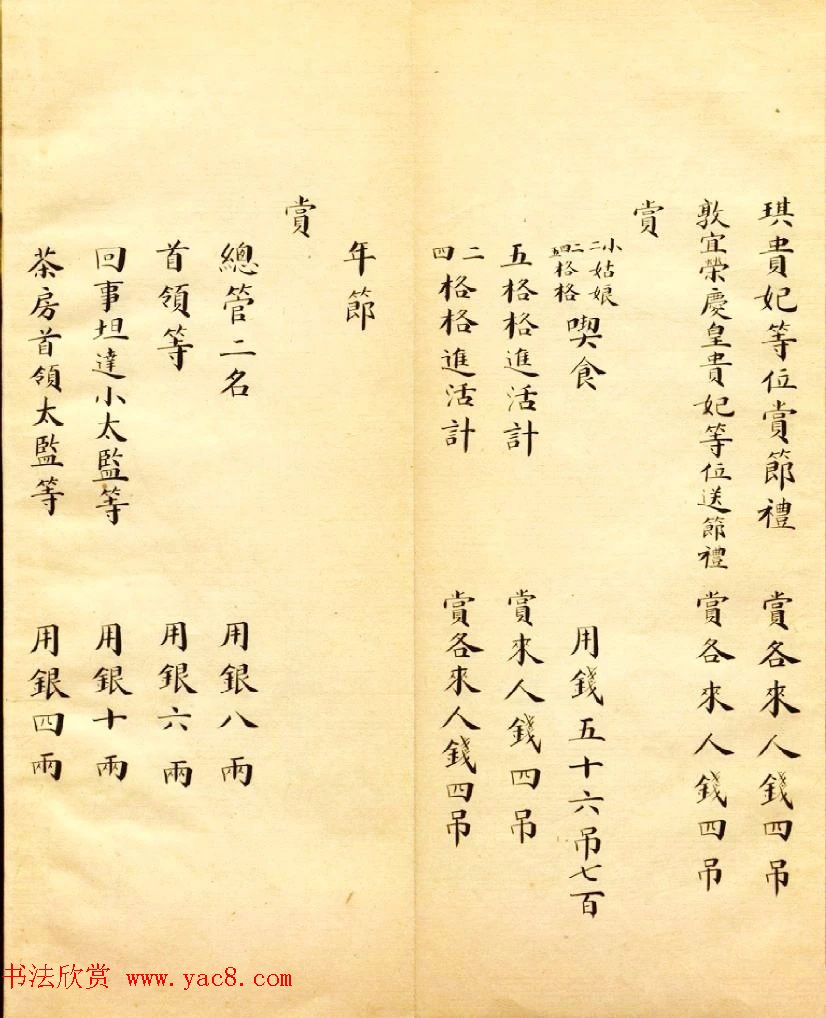 琪貴妃等位賞節禮　賞各來人錢四吊
敦宜榮慶皇貴妃等位送節禮　賞各來人錢四吊
賞
小二姑娘
二四五格格格　喫食　用錢五十六吊七百
五格格進活計　賞來人錢四吊
二四格格進活計　賞各來人錢四吊
年節
賞
總管二名　用銀八兩
首領等　用銀六兩
回事坦達小太監等　用銀十兩
茶房首領太監等　用銀四兩
书法欣赏 www.yac8.com